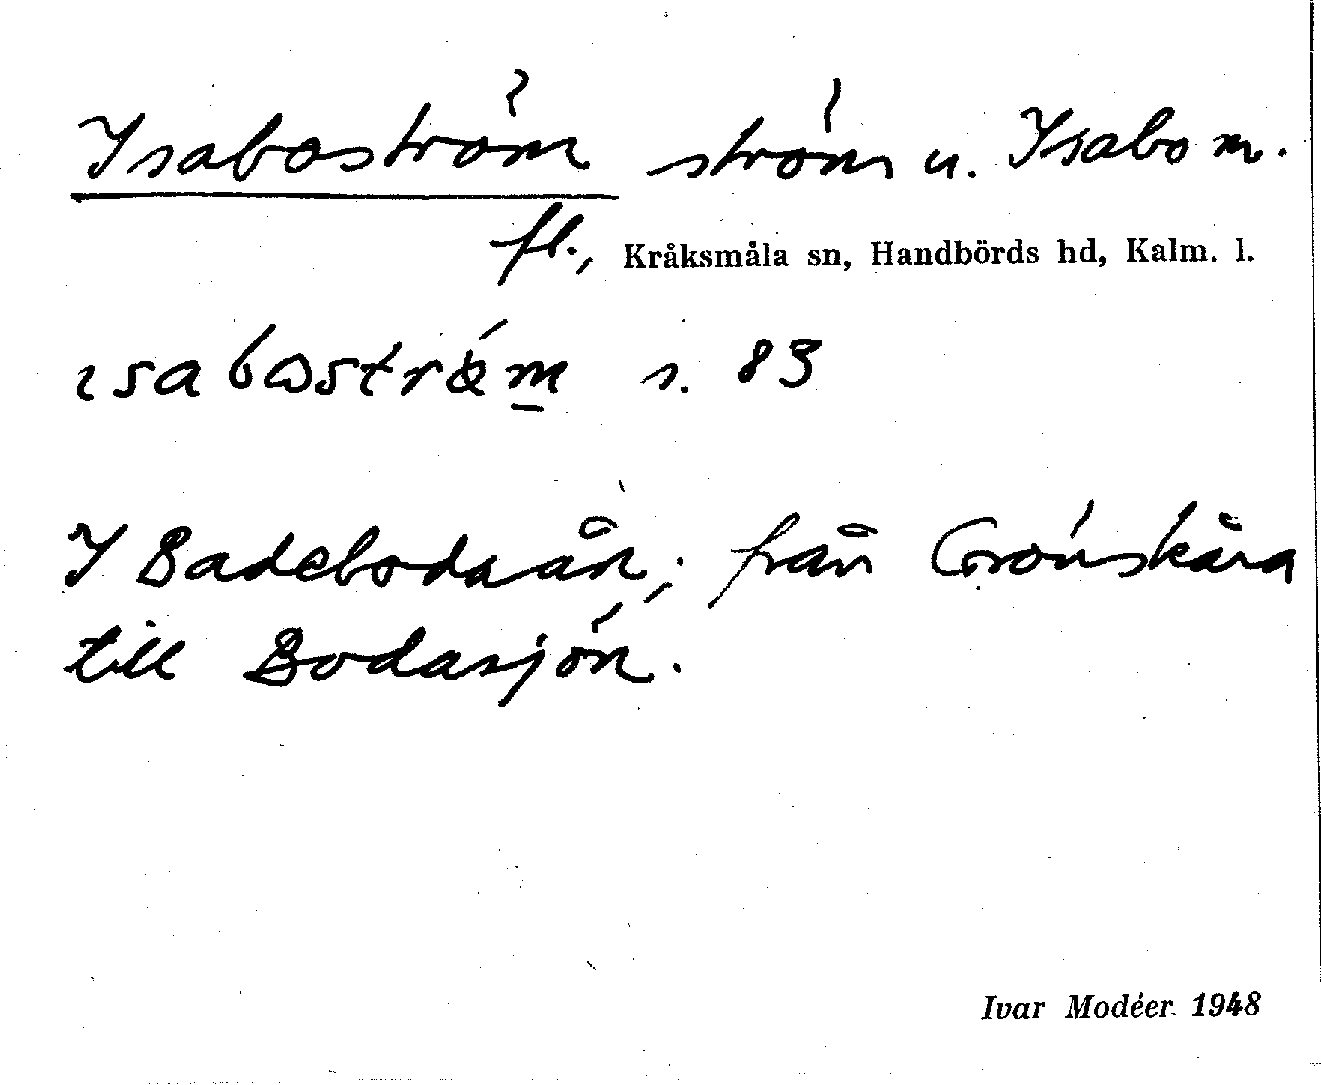 Isaboström ström u. Isabo m.
fl., Kråksmåla sn, Handbörds hd, Kalm. l.
ısabωstrǿm s. 83
I Badebodaån; från Grönskåra
till Bodasjön.
Ivar Modéer 1948